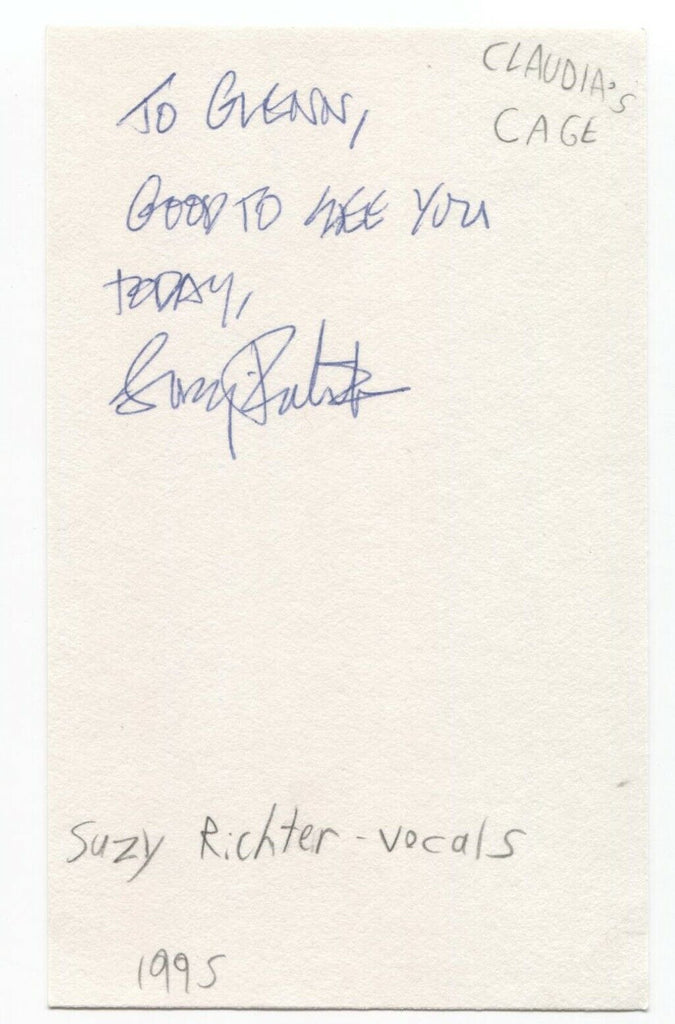 CLAUDIA'S
CAGE
TO GLENN,
GOOD TO SEE YOU
TODAY,
Suzy Richter
Suzy Richter - vocals
1995